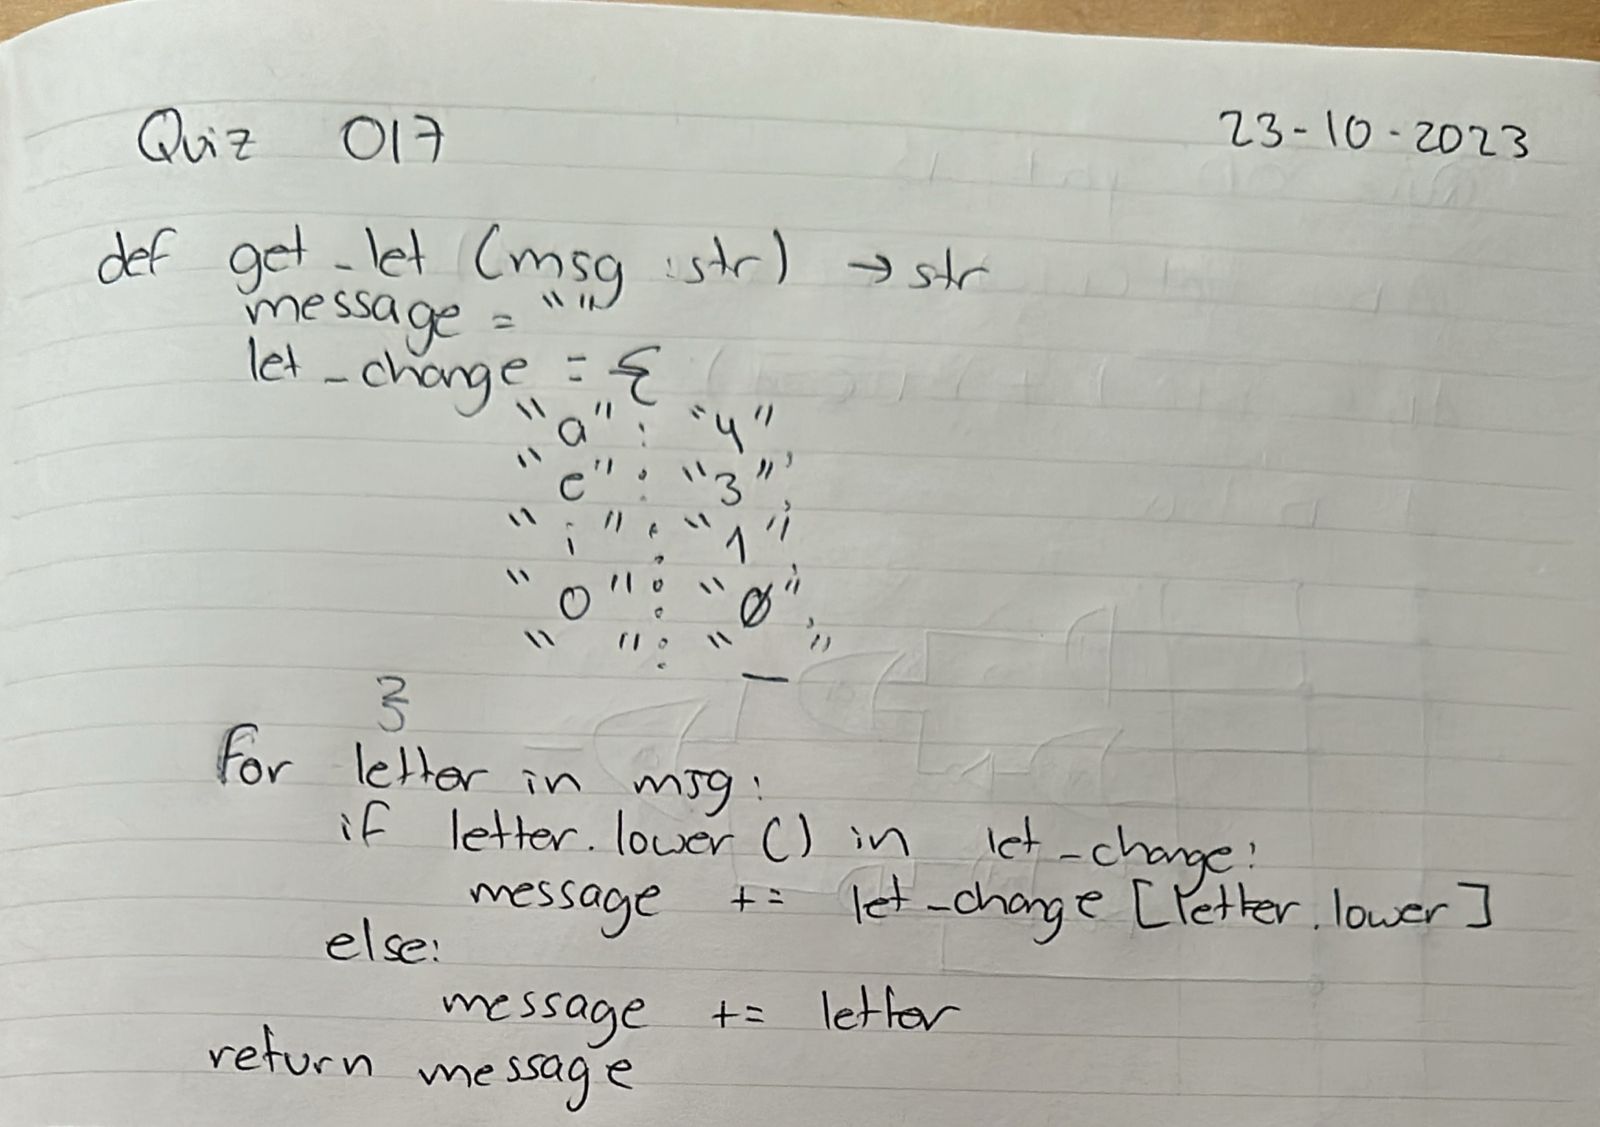 Quiz 017 23-10-2023
def get_let (msg :str) → str
message = ""
let_change = {
"a" : "4",
"e" : "3",
"i" : "1",
"o" : "0",
" " : "_"
}
for letter in msg:
if letter.lower () in let_change:
message += let_change [letter.lower]
else:
message += letter
return message